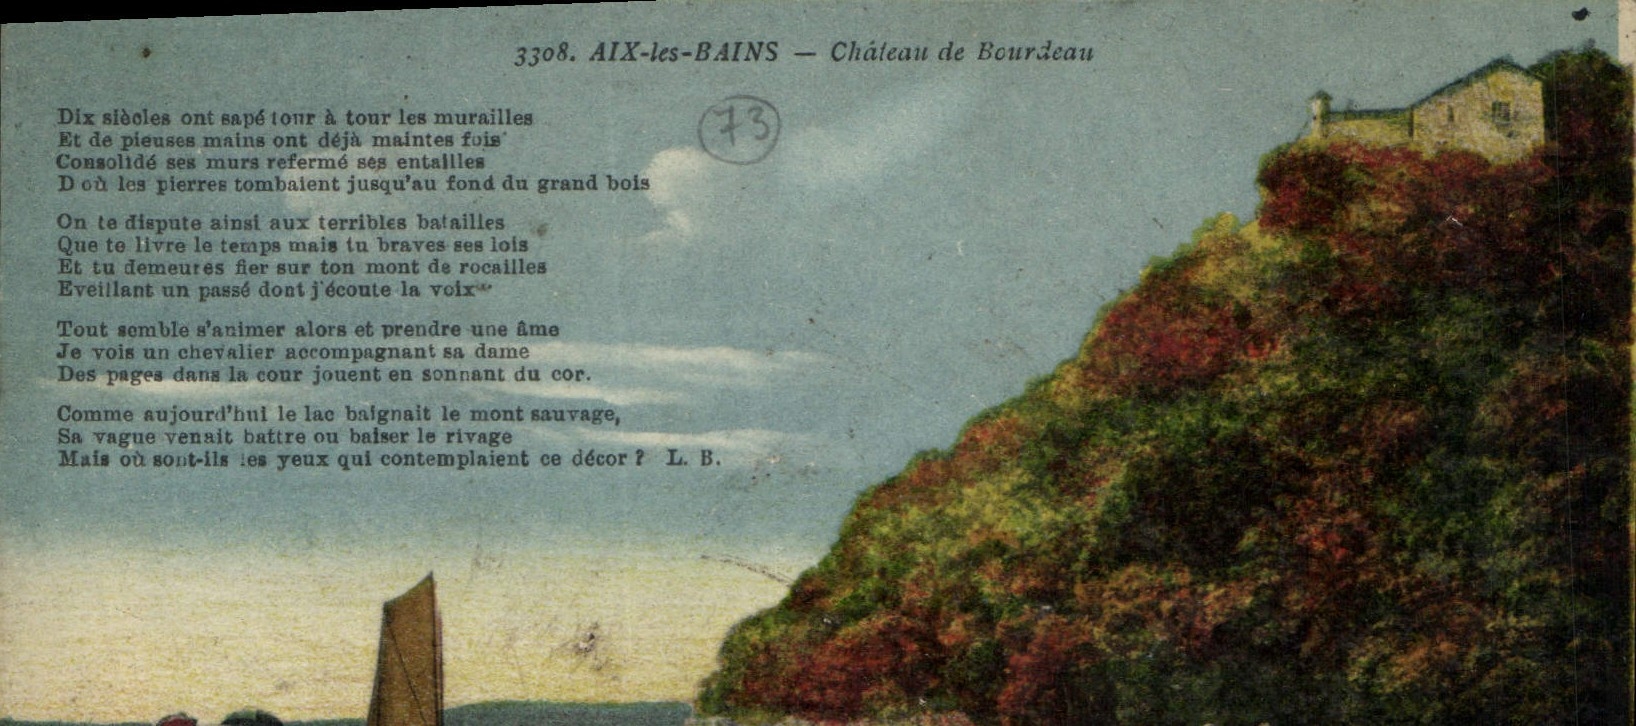 3308. AIX-les-BAINS — Château de Bourdeau
73
Dix siècles ont sapé tour à tour les murailles
Et de pieuses mains ont déjà maintes fois
Consolidé ses murs refermé ses entailles
D où les pierres tombaient jusqu'au fond du grand bois
On te dispute ainsi aux terribles batailles
Que te livre le temps mais tu braves ses lois
Et tu demeures fier sur ton mont de rocailles
Eveillant un passé dont j'écoute la voix
Tout semble s'animer alors et prendre une âme
Je vois un chevalier accompagnant sa dame
Des pages dans la cour jouent en sonnant du cor.
Comme aujourd'hui le lac baignait le mont sauvage,
Sa vague venait battre ou baiser le rivage
Mais où sont-ils les yeux qui contemplaient ce décor ? L. B.